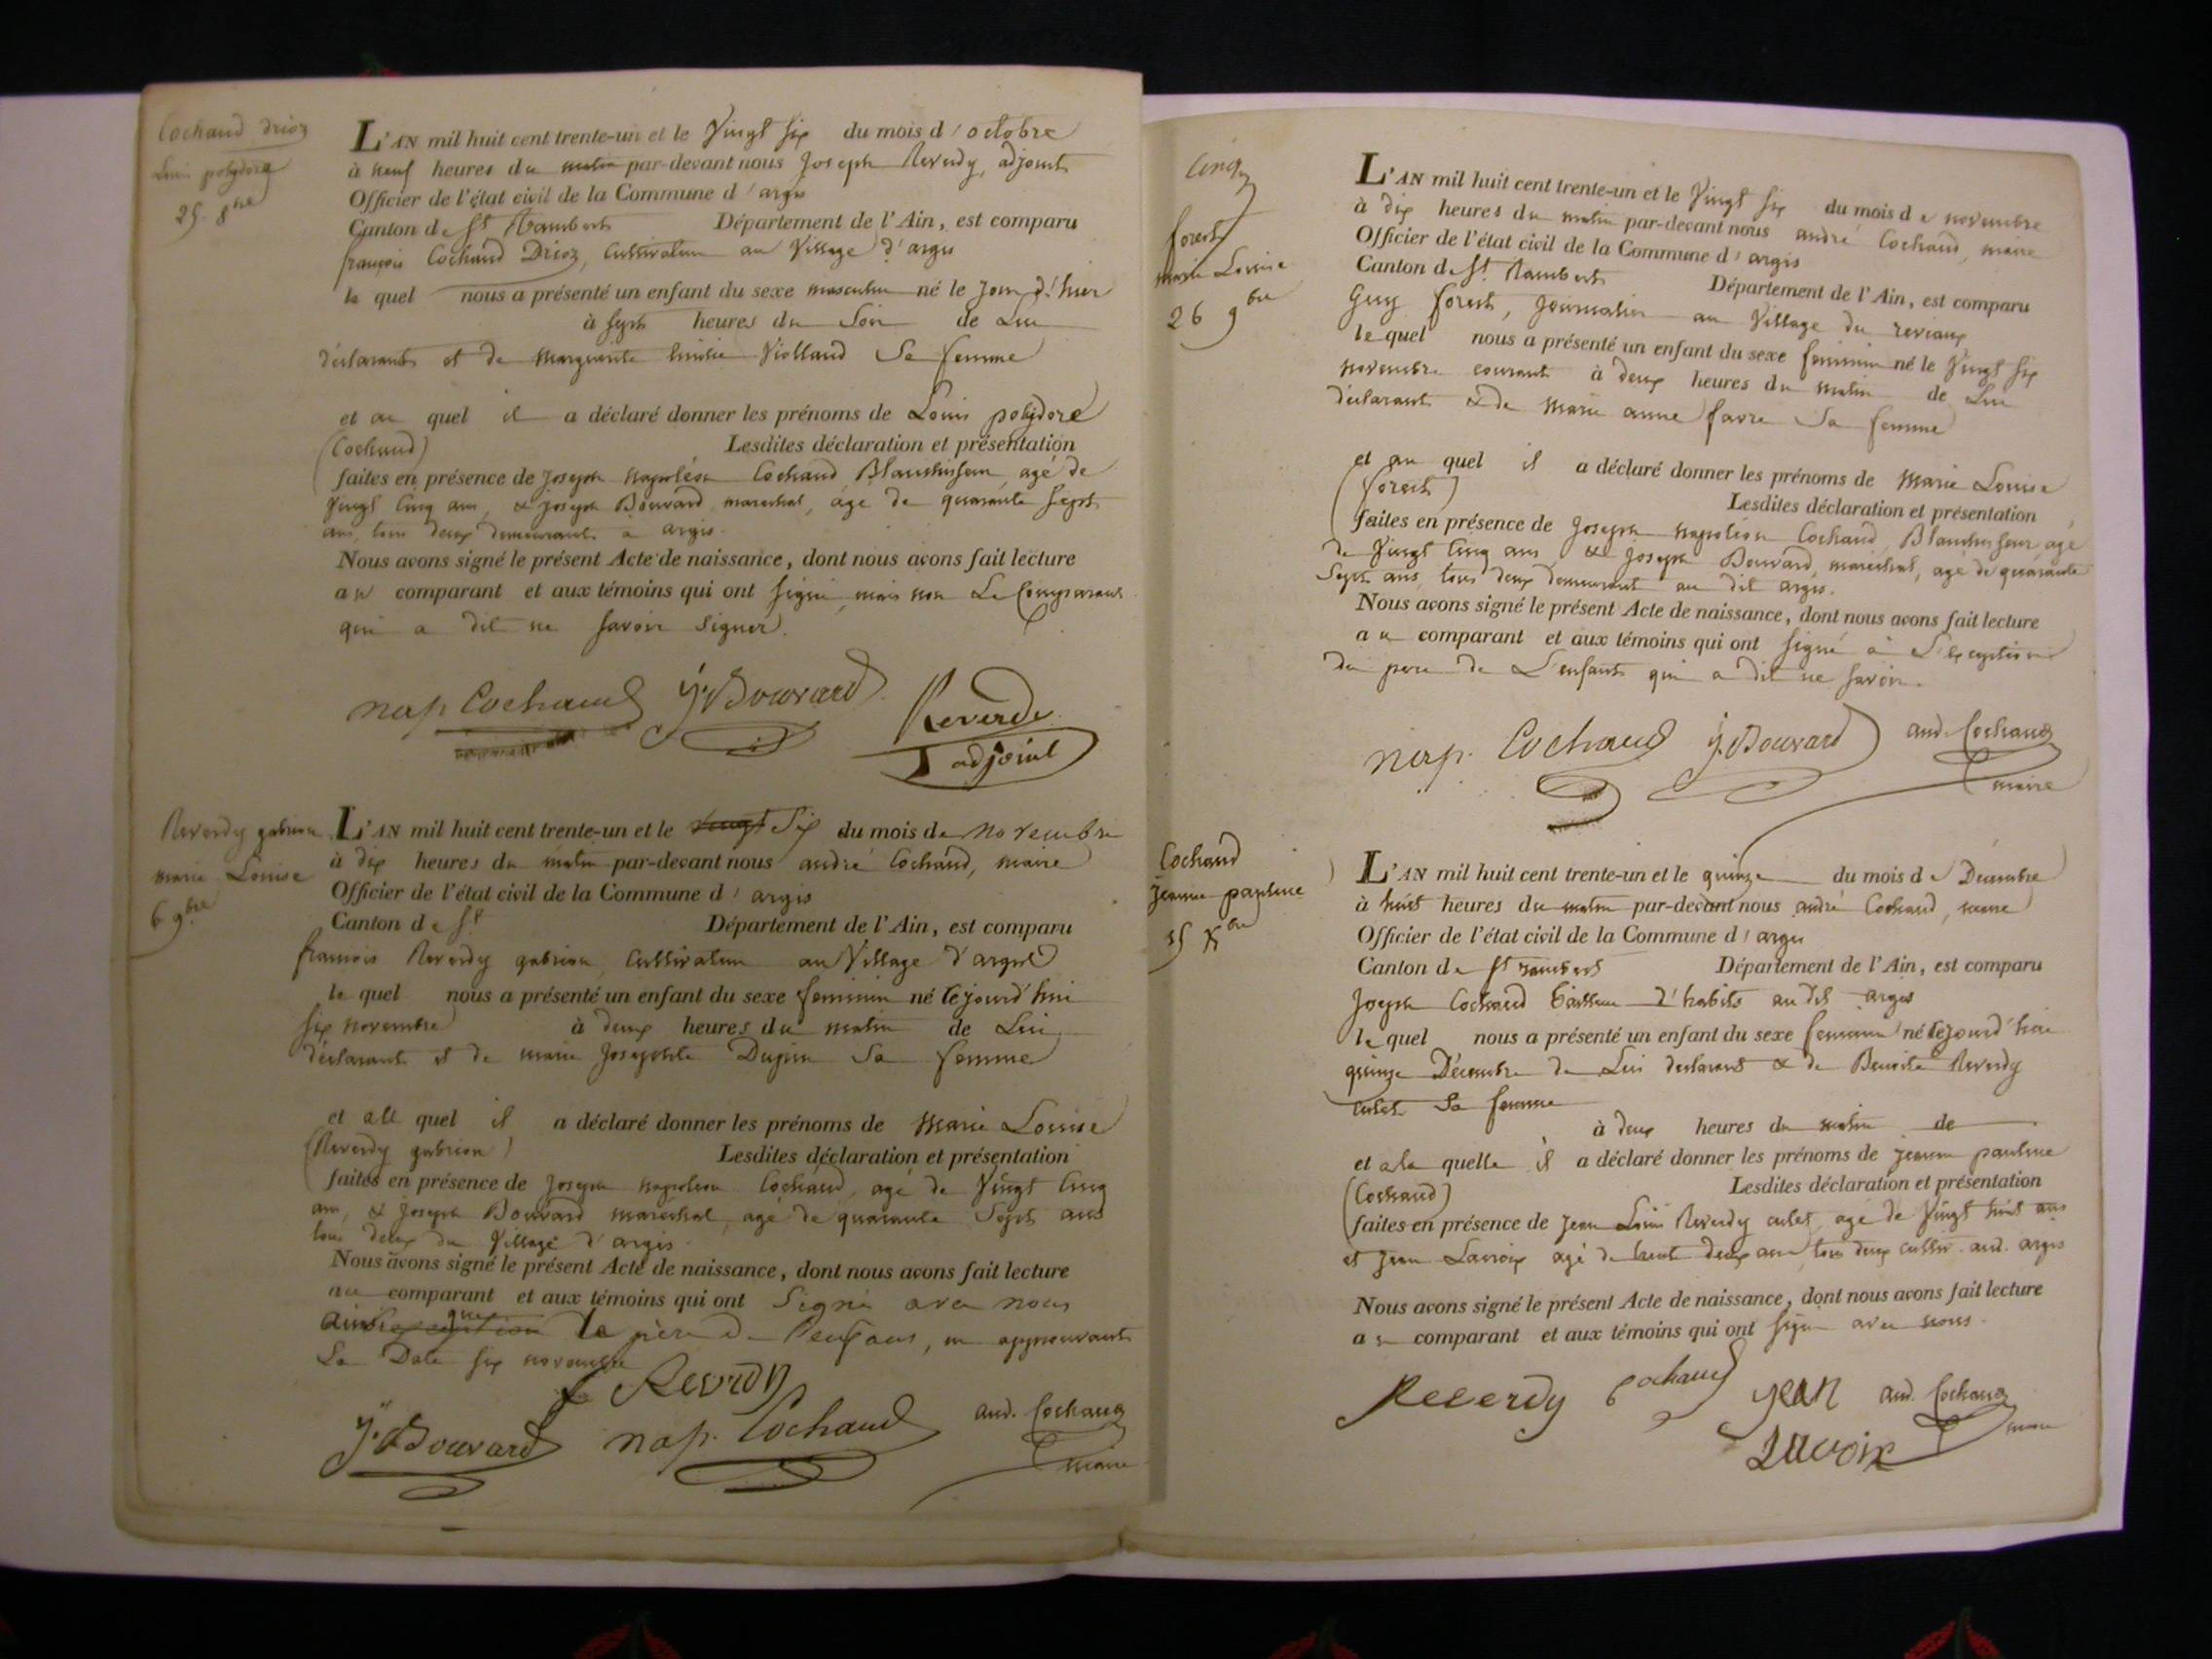 Cochaud Drioz
Louis polydore
25. 8bre
L'AN mil huit cent trente-un et le Vingt six du mois d'octobre
à neuf heures du matin par-devant nous Joseph Reverdy, adjoint
Officier de l'état civil de la Commune d'argis
Canton de St Rambert Département de l'Ain, est comparu
françois Cochaud Drioz, Cultivateur au Village d'argis
le quel nous a présenté un enfant du sexe masculin né le jour d'hier
à sept heures du Soir de Lui
déclarant et de Marguerite Viollaud Sa femme
et au quel il a déclaré donner les prénoms de Louis polydore
(Cochaud) Lesdites déclaration et présentation
faites en présence de Joseph Napoléon Cochaud Blanchisseur, agé de
Vingt cinq ans, & joseph Bouvard marechal, age de quarante sept
ans, tous deux demeurant à argis.
Nous avons signé le présent Acte de naissance, dont nous avons fait lecture
au comparant et aux témoins qui ont signé, mais non Le Comparant
qui a dit ne savoir signer.
nap Cochaud j. Bouvard Reverdy
adjoint
Reverdy gabrion
marie Louise
6 9bre
L'AN mil huit cent trente-un et le vingt Six du mois de novembre
à dix heures du matin par-devant nous andré Cochaud, maire
Officier de l'état civil de la Commune d'argis
Canton de St Département de l'Ain, est comparu
francois Reverdy gabrion, Cultivateur au Village d'argis
le quel nous a présenté un enfant du sexe feminin né le jourd'hui
six novembre à deux heures du matin de Lui
déclarant et de marie Josephte Dupin Sa femme
et au quel il a déclaré donner les prénoms de Marie Louise
(Reverdy gabrion) Lesdites déclaration et présentation
faites en présence de Joseph napoleon Cochaud, agé de Vingt cinq
ans, & joseph Bouvard marechal, agé de quarante Sept ans
tous deux du Village d'argis.
Nous avons signé le présent Acte de naissance, dont nous avons fait lecture
au comparant et aux témoins qui ont Signé avec nous
ainsi que le père de l'enfant, en approuvant
La Date six novembre
f Reverdy
j. Bouvard nap. Cochaud and. Cochaud
maire
Cinq
forest
marie Louise
26 9bre
L'AN mil huit cent trente-un et le Vingt six du mois de novembre
à dix heures du matin par-devant nous andré Cochaud, maire
Officier de l'état civil de la Commune d'argis
Canton de St Rambert Département de l'Ain, est comparu
Guy forest, journalier au Village du reviaux
le quel nous a présenté un enfant du sexe feminin né le Vingt six
novembre courant à deux heures du matin de Lui
déclarant & de Marie anne favre Sa femme
et au quel il a déclaré donner les prénoms de Marie Louise
(forest) Lesdites déclaration et présentation
faites en présence de Joseph Napoléon Cochaud, Blanchisseur, agé
de Vingt cinq ans, & Joseph Bouvard, marechal, agé de quarante
Sept ans, tous deux demeurant au dit argis.
Nous avons signé le présent Acte de naissance, dont nous avons fait lecture
au comparant et aux témoins qui ont signé à L'exception
du pere de L'enfant qui a dit ne savoir.
nap. Cochaud j. Bouvard and. Cochaud
maire
Cochaud
jeanne pauline
15 Xbre
L'AN mil huit cent trente-un et le quinze du mois de Décembre
à huit heures du matin par-devant nous andré Cochaud, maire
Officier de l'état civil de la Commune d'argis
Canton de St rambert Département de l'Ain, est comparu
Joseph Cochaud tailleur d'habits au dit argis
le quel nous a présenté un enfant du sexe feminin né le jourd'hui
quinze Décembre de Lui declarant & de Benoite Reverdy
culet Sa femme
à deux heures du matin de
et a la quelle il a déclaré donner les prénoms de jeanne pauline
(Cochaud) Lesdites déclaration et présentation
faites en présence de jean Louis Reverdy culet, agé de Vingt huit ans
et jean Lacroix agé de trent deux ans, tous deux cultiv. aud. argis
Nous avons signé le présent Acte de naissance, dont nous avons fait lecture
au comparant et aux témoins qui ont signé avec nous.
Reverdy Cochaud jean and. Cochaud
maire